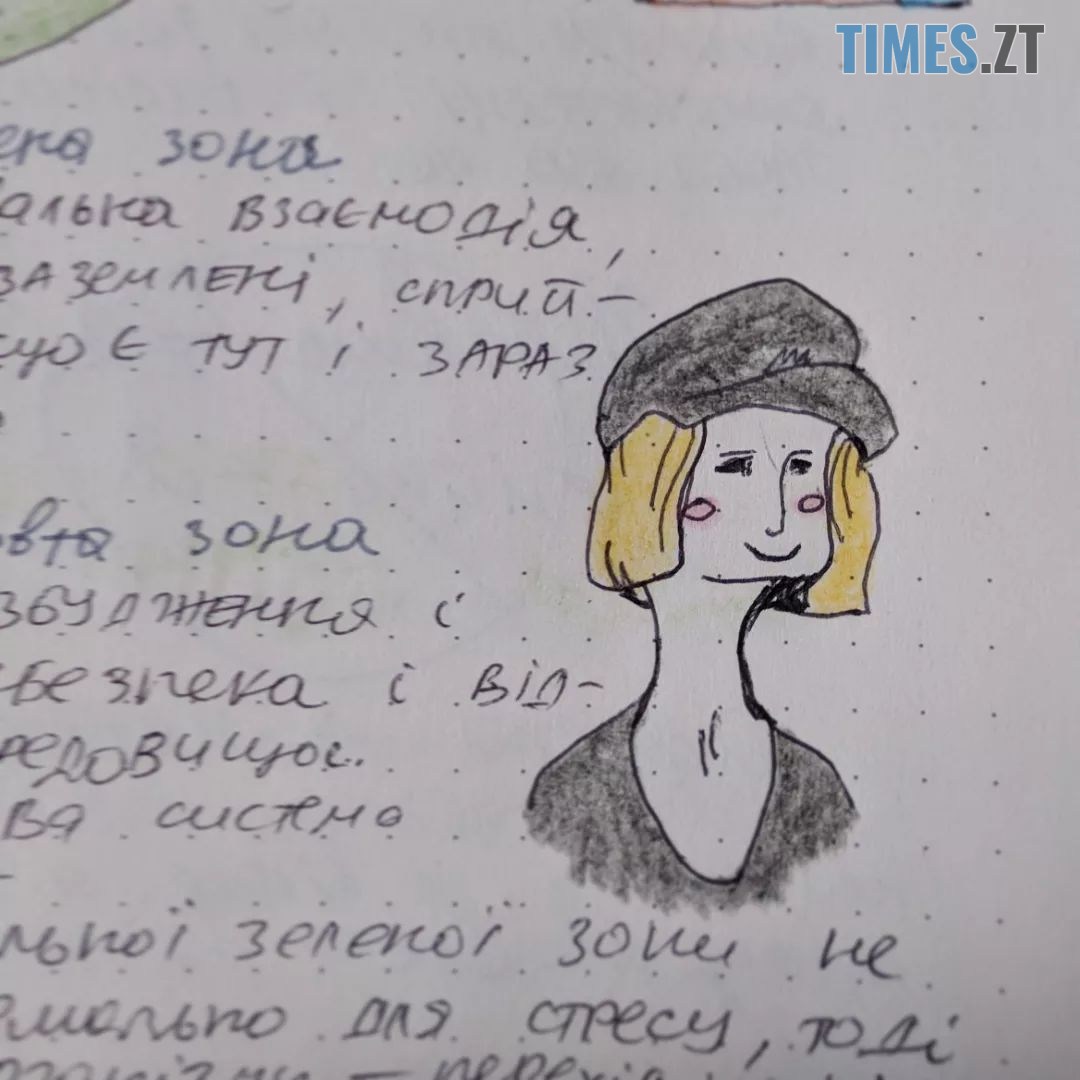 TIMES.ZT
ена зона
альна взаємодія,
заземлені, сприй-
що є тут і зараз
вта зона
збудження і
безпека і від-
редовищем.
ва система
льної зеленої зони не
рмально для стресу, тоді